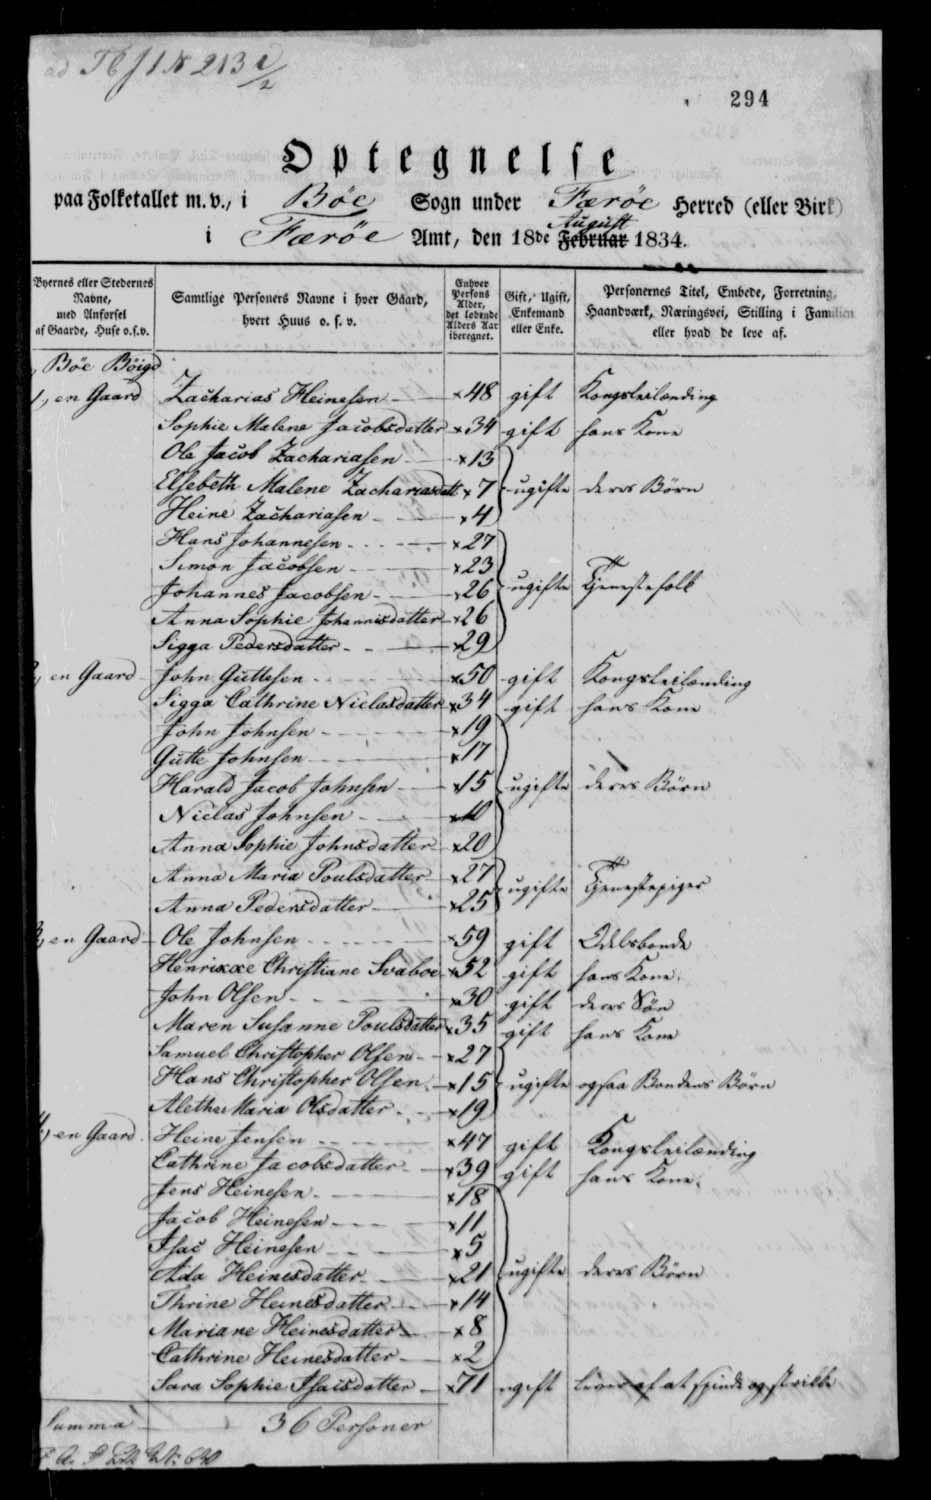 ad Tb J 1 N 213 1/2
294
Optegnelse
paa Folketallet m. v., i Böe Sogn under Færöe Herred (eller Birk)
August
i Færöe Amt, den 18de Februar 1834.
Byernes eller Stedernes Navne, med Anførsel af Gaarde, Huse o.s.v.
Samtlige Personers Navne i hver Gaard, hvert Huus o. s. v.
Enhver Persons Alder, det løbende Alders Aar iberegnet.
Gift, Ugift, Enkemand eller Enke.
Personernes Titel, Embede, Forretning, Haandværk, Næringsvei, Stilling i Familien eller hvad de leve af.
Böe Böigd
1, en Gaard Zacharias Heinesen x 48 gift Kongsleilænding
Sophie Malene Jacobsdatter x 34 gift hans Kone
Ole Jacob Zachariasen x 13
Elsebeth Malene Zachariasdatt x 7 ugifte deres Börn
Heine Zachariasen x 4
Hans Johannesen x 27
Simon Jacobsen x 23
Johannes Jacobsen x 26 ugifte Tjenestefolk
Anna Sophie Johannisdatter x 26
Sigga Pedersdatter x 29
2, en Gaard John Guttesen x 50 gift Kongsleilænding
Sigga Cathrine Niclasdatter x 34 gift hans Kone
John Johnsen x 19
Gutte Johnsen x 17
Harald Jacob Johnsen x 15 ugifte deres Börn
Niclas Johnsen x 10
Anna Sophie Johnsdatter x 20
Anna Maria Poulsdatter x 27
ugifte Tjenestepiger
Anna Pedersdatter x 25
3, en Gaard Ole Johnsen x 59 gift Odelsbonde
Henrikke Christiane Svaboe x 52 gift hans Kone.
John Olsen x 30 gift deres Sön
Maren Susanne Poulsdatter x 35 gift hans Kone
Samuel Christopher Olsen x 27
Hans Christopher Olsen x 15 ugifte ogsaa Bondens Börn
Alethe Maria Olsdatter x 19
4, en Gaard Heine Jensen x 47 gift Kongsleilænding
Cathrine Jacobsdatter x 39 gift hans Kone.
Jens Heinesen x 18
Jacob Heinesen x 11
Isac Heinesen x 5
Ada Heinesdatter x 21 ugifte deres Börn
Thrine Heinesdatter x 14
Mariane Heinesdatter x 8
Cathrine Heinesdatter x 2
Sara Sophie Isaisdatter x 71 ugift lever af at spinde og strikke
Summa 36 Personer